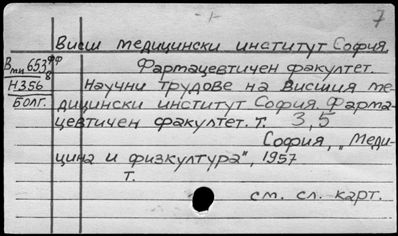 7
Висш медицински институт София.
Фармацевтичен факултет.
Вти 653 фф
8
Н356
Болг.
Научни трудове на Висшия ме-
дицински институт София. Фарма-
цевтичен факултет. т. 3,5
София, „Меди-
цина и физкултура", 1957
т.
см. сл. карт.